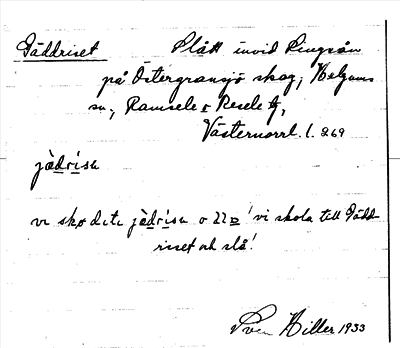 Gäddriset Slått invid Ringsån
på Östergransjö skog, Helgums
sn, Ramsele o Resele tg,
Västernorrl. l. 269
jèdrísa
vi sko dit i jèdrísa o 'vi skola till Gädd
riset och slå!
Sven Hiller 1933